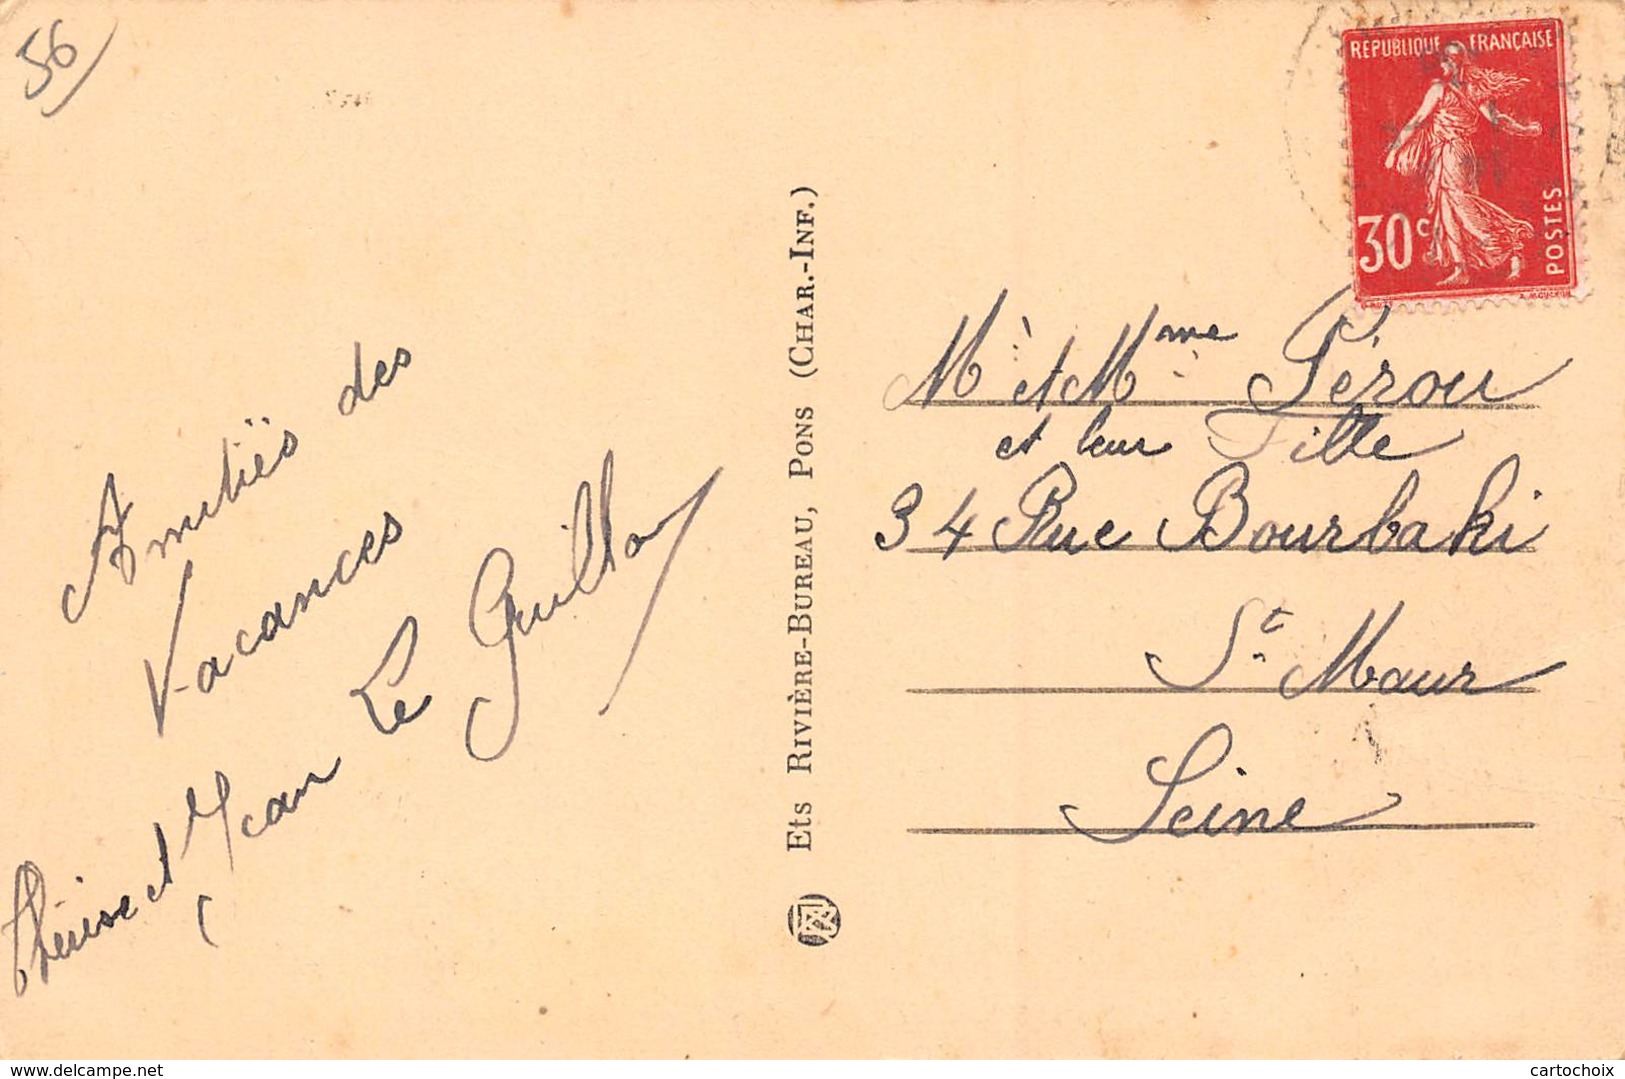 56
Amitiés des
Vacances
Thérèse et Jean Le Guillou
Ets Rivière-Bureau, Pons (Char.-Inf.)
REPUBLIQUE FRANÇAISE
30c
POSTES
Mr et Mme Pérou
et leur Fille
34 Rue Bourbaki
St Maur
Seine
delcampe.net
cartochoix